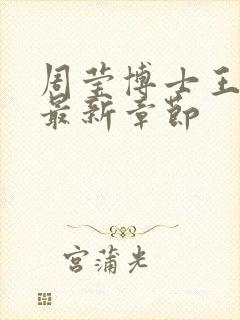 周莹博士王
最新章节
宫蒲光